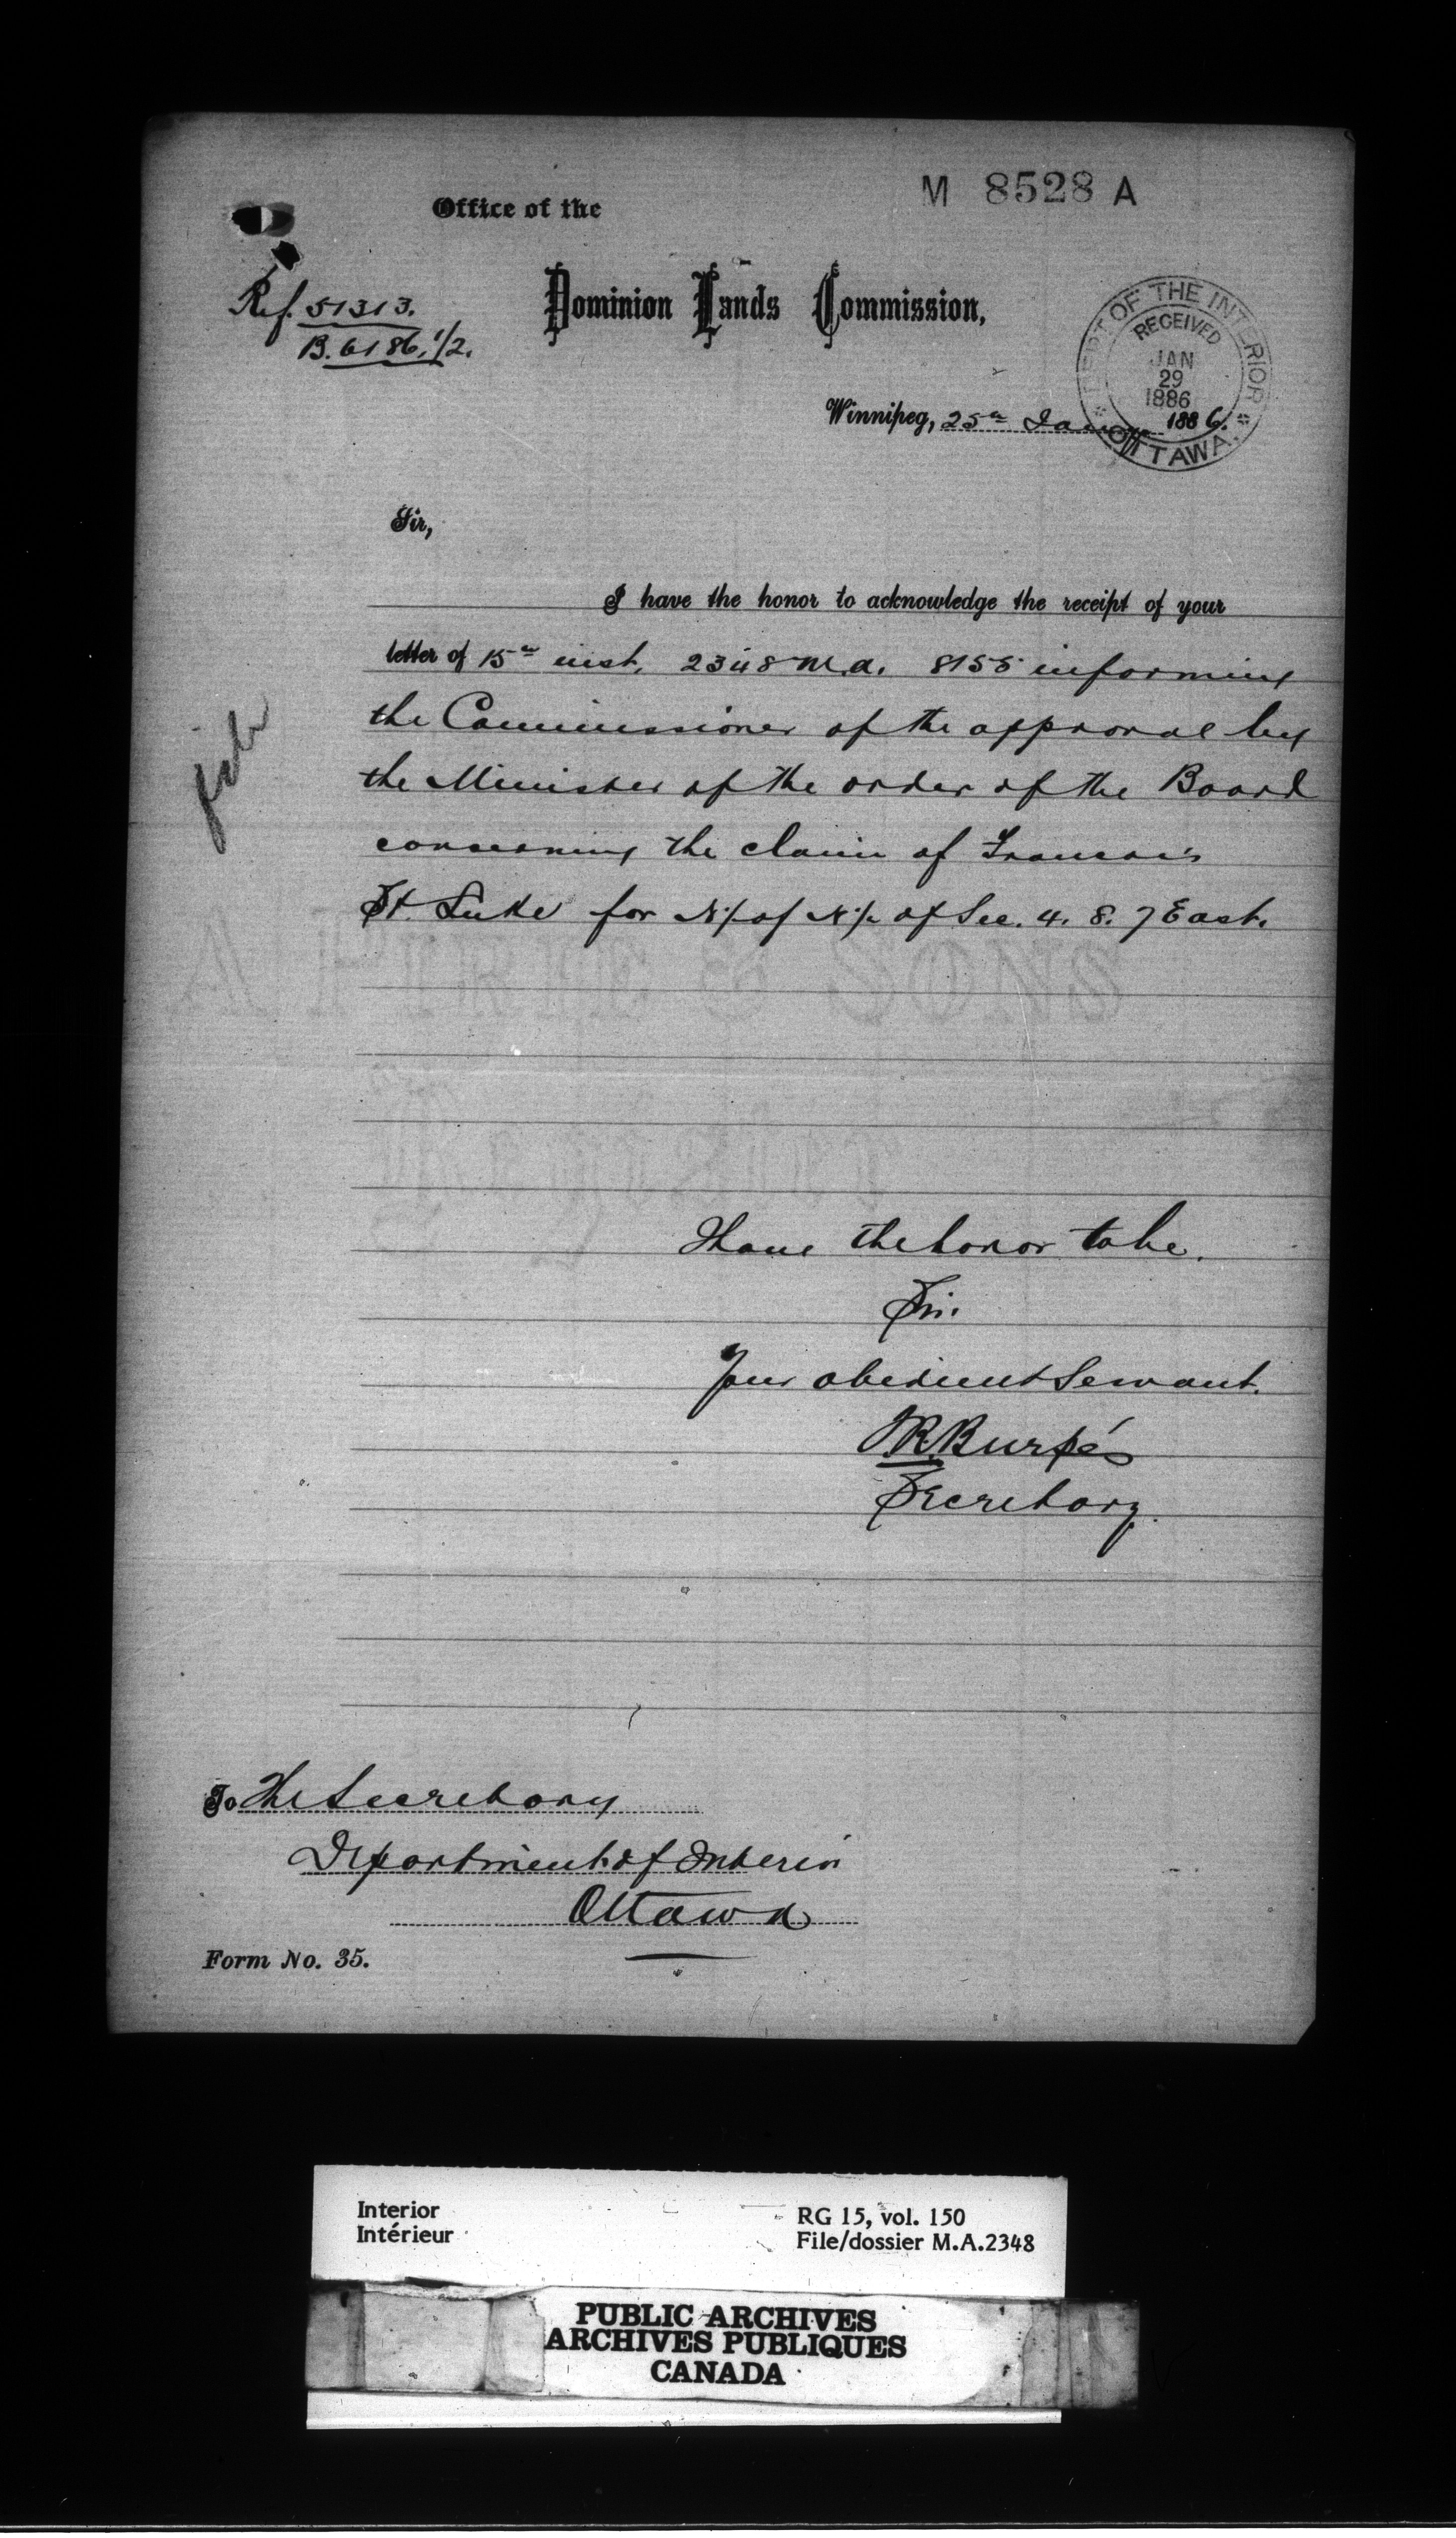 M 8528 A
Office of the
Dominion Lands Commission,
Ref. 51313.
B. 6186. 1/2.
DEPT OF THE INTERIOR
RECEIVED
JAN
29
1886
OTTAWA.
Winnipeg, 25th Jan 1886.
Sir,
I have the honor to acknowledge the receipt of your
letter of 15th inst. 2348 M.A. 8155 informing
the Commissioner of the approval by
the Minister of the order of the Board
concerning the claim of Francois
St. Luke for N½ of N½ of Sec. 4. 8. 7 East.
file
A PIRIE & SONS
Register
I have the honor to be.
Sir.
Your obedient Servant.
Burpé
Secretary.
To The Secretary
Department of Interior
Ottawa
Form No. 35.
Interior
Intérieur
RG 15, vol. 150
File/dossier M.A.2348
PUBLIC ARCHIVES
ARCHIVES PUBLIQUES
CANADA